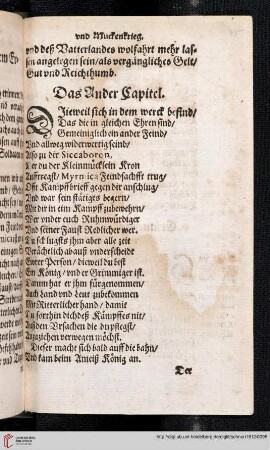 vnd Muckenkrieg.
vnd deß Vatterlandes wolfahrt mehr las-
sen angelegen sein/als vergängliches Gelt/
Gut vnd Reichthumb.
Das Ander Capitel.
DIeweil sich in dem werck befind/
Das die in gleichen Ehren sind,
Gemeinglich ein ander Feind/
Und allweg widerwertig seind/
Also zu der Siccaboron,
Der zu der Kleinmücklein Kron
Auffreegst/Myrnica Feindschafft trug/
Offt Kampff brieff gegen dir anschlug/
Und war sein stätiges begern/
Mit dir in eim Kampff zubewehrn/
Wer vnder euch Ruhmwürdiger
Und seiner Faust Redlicher wer.
ihm aber alle zeit
Verächtlich ab auß vnderscheidt
Ewer Person/dieweil du bist
Ein König/vnd er Grimmiger ist.
Darumb hat er ihm fürgenommen/
Auch Land vnd Leut zubekommen
Mit Ritterlicher hand/damit
Du forthin dich deß Kämpffes nit/
Auß den Vrsachen die du pflegst/
Anzuziehen verwegen möchst.
Dieser macht sich bald auff die bahn/
Und kam beim Ameiß König an.
Der